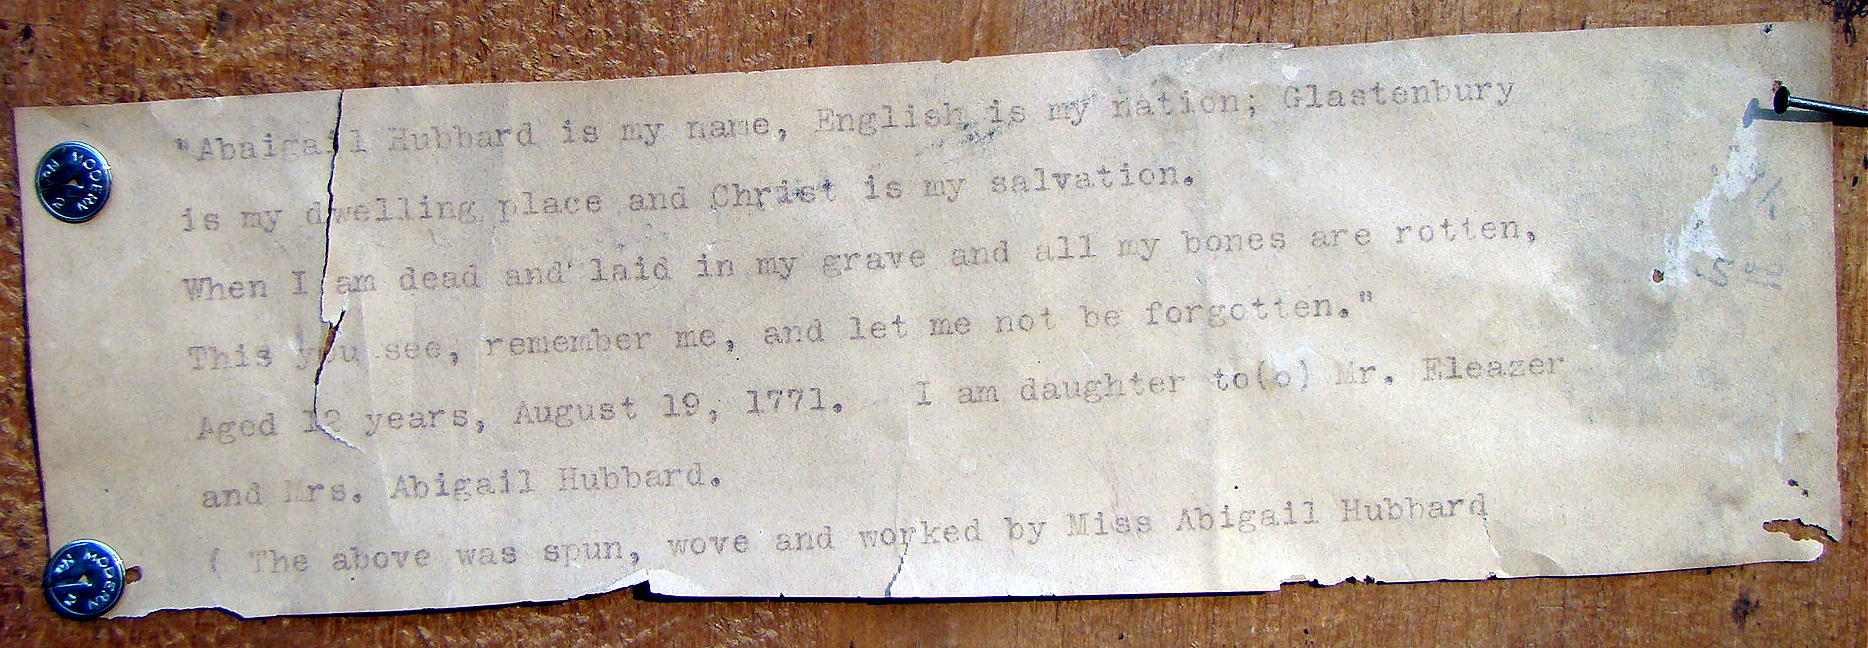 "Abaigail Hubbard is my name, English is my nation; Glastenbury
is my dwelling place and Christ is my salvation.
When I am dead and laid in my grave and all my bones are rotten,
This you see, remember me, and let me not be forgotten."
Aged 12 years, August 19, 1771. I am daughter to(o) Mr. Eleazer
and Mrs. Abigail Hubbard.
( The above was spun, wove and worked by Miss Abigail Hubbard
MODERN
MODERN